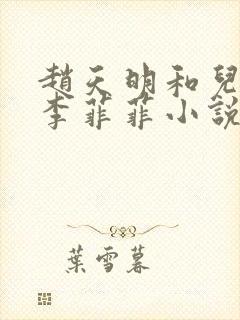 趙天明和兒
李菲菲小說
葉雪暮